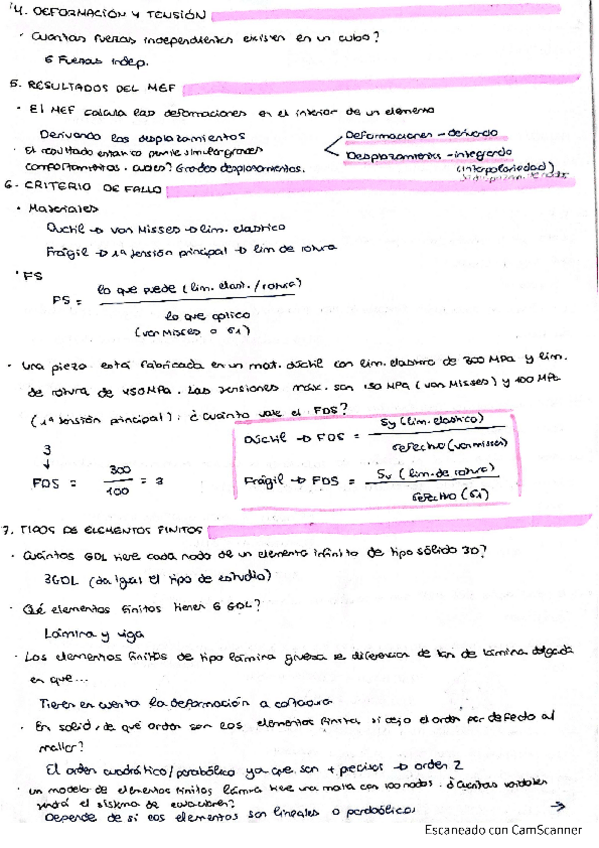 4. DEFORMACIÓN Y TENSIÓN
· Cuantas fuerzas independientes existen en un cubo?
6 Fuerzas indep.
5. RESULTADOS DEL MEF
· El MEF calcula las deformaciones en el interior de un elemento
Derivando los desplazamientos
Deformaciones - derivada
Desplazamientos - integrando
(interpolaridad)
· El resultado estático permite simular grandes
comportamientos. cuales? Grandes desplazamientos.
6- CRITERIO DE FALLO
· Materiales
Ductil → von Misses → lim. elastico
Frágil → 1ª tensión principal → lim de rotura
· FS
FS = lo que puede (lim. elast. / rotura)
lo que aplico
(von Misses o σ1)
· Una pieza está fabricada en un mat. dúctil con lim. elastico de 300 MPa y lim.
de rotura de 450MPa. Las tensiones máx. son 150 MPa (von Misses) y 100 MPa
(1ª tensión principal): ¿cuánto vale el FDS?
3
↓
FDS = 300 / 100 = 3
Dúctil → FDS = Sy (lim. elastico)
σefectivo (von misses)
Frágil → FDS = Su (lim. de rotura)
σefectivo (σ1)
7. TIPOS DE ELEMENTOS FINITOS
· Cuántos GDL tiene cada nodo de un elemento infinito de tipo sólido 3D?
3GDL (da igual el tipo de estudio)
· Qué elementos finitos tienen 6 GDL?
Lámina y viga
· Los elementos finitos de tipo lámina gruesa se diferencian de los de lámina delgada
en que...
Tienen en cuenta la deformación a cortadura
· En solid, de qué orden son los elementos finitos si dejo el orden por defecto al
mallar?
El orden cuadrático/parabólico ya que son + precisos → orden 2
· un modelo de elementos finitos lámina tiene una malla con 100 nodos. ¿Cuantas variables
tendrá el sistema de ecuaciones?
Depende de si los elementos son lineales o parabólicos
→
Escaneado con CamScanner